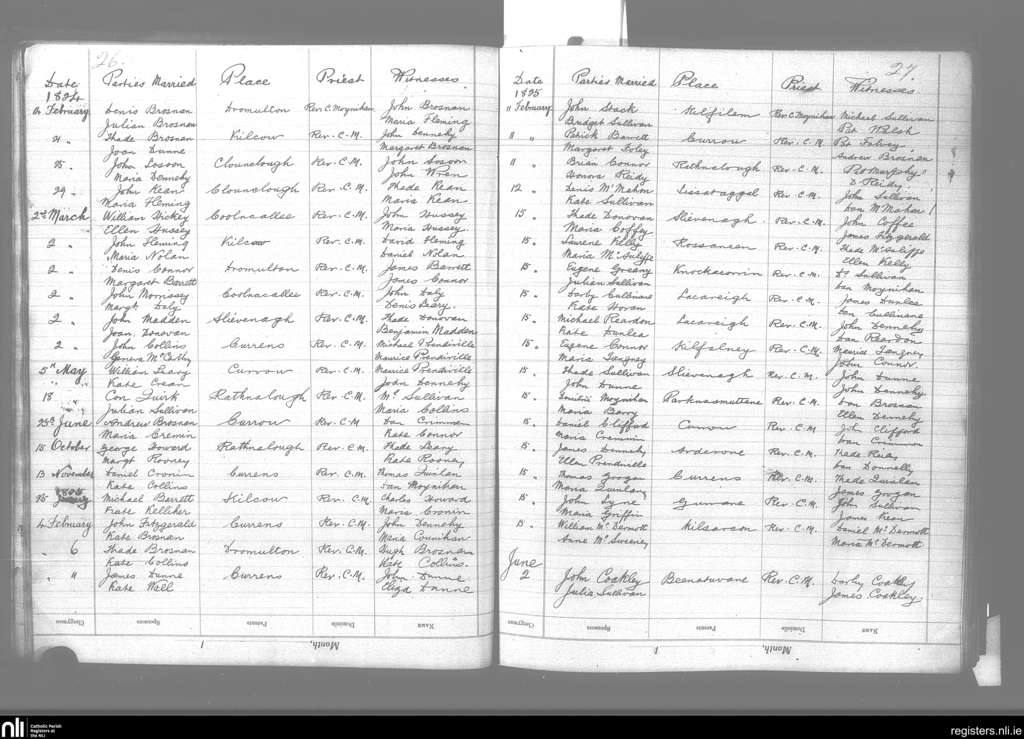 26.
Date Parties Married Place Priest Witnesses
1824
February Denis Brosnan Dromulton Rev. C. Moynihan John Brosnan
Julian Brosnan Maria Fleming
21 " Thade Brosnan Kilcow Rev. C. M. John Dennehy
Joan Dunne Margaret Brosnan
25 " John Clounclough Rev. C. M. John
Maria Dennehy John Wren
29 " John Kean Clounclough Rev. C. M. Thade Kean
Maria Fleming Maria Kean
2nd March William Hickey Coolnacallee Rev. C. M. John Hussey
Ellen Hussey Maria Hussey
2 " John Fleming Kilcow Rev. C. M. David Fleming
Maria Nolan Daniel Nolan
2 " Denis Connor Dromulton Rev. C. M. James Barrett
Margaret Barrett James Connor
2 " John Morrissey Coolnacallee Rev. C. M. John Daly
Margt Daly Denis Leary
2 " John Madden Slievenagh Rev. C. M. Thade Donovan
Joan Donovan Benjamin Madden
2 " John Collins Currens Rev. C. M. Michael Prendiville
Geneva McCarthy Maurice Prendiville
5th May William Leary Currow Rev. C. M. Maurice Prendiville
Kate Crean Joan Dennehy
18 " Con Quirk Rathnalough Rev. C. M. Mc Sullivan
Julian Sullivan Maria Collins
25th June Andrew Brosnan Currow Rev. C. M. Dan Crimmin
Maria Cremin Kate Connor
15 October George Howard Rathnalough Rev. C. M. Thade Leary
Margt Rooney Kate Rooney
13 November Daniel Cronin Currens Rev. C. M. Thomas Quinlan
Kate Collins Dan Moynihan
1825
25 Michael Barrett Kilcow Rev. C. M. Charles Howard
Kate Kelliher Maria Cronin
4 February John Fitzgerald Currens Rev. C. M. John Dennehy
Kate Brosnan Maria Counihan
" 6 Thade Brosnan Dromulton Rev. C. M. Hugh Brosnan
Kate Collins Kate Collins.
" " James Dunne Currens Rev. C. M. John Dunne
Kate Wall Eliza Dunne
Clergyman Sponsors Parents Domicile NAME
Month, 1
27.
Date Parties Married Place Priest Witnesses
1825
11 February John Stack Kilfilem Rev. C. Moynihan Michael Sullivan
Bridget Sullivan Pat Walsh
11 " Patrick Barrett Currow Rev. C. M. Pat Falvey
Margaret Foley Andrew Brosnan
11 " Brian Connor Rathnalough Rev. C. M. Pat Murphy
Honora Reidy D Reidy
12 " Denis McMahon Lissataggel Rev. C. M. John Sullivan
Kate Sullivan Dan McMahon
15 " Thade Donovan Slievenagh Rev. C. M. John Coffee
Maria Coffey James Fitzgerald
15 " Laurence Kelly Rossansen Rev. C. M. Thade McAuliffe
Maria McAuliffe Ellen Kelly
15 " Eugene Greany Knockasorrin Rev. C. M. Sullivan
Julian Sullivan Dan Moynihan
15 " Darby Cullinane Lacareigh Rev. C. M. James Dunlea
Kate Horan Dan Cullinane
15 " Michael Reardon Lacareigh Rev. C. M. John Dennehy
Kate Dunlea Dan Reardon
15 " Eugene Connor Kilfalney Rev. C. M. Maurice Tangney
Maria Tangney John Connor
15 " Thade Sullivan Slievenagh Rev. C. M. John Dunne
John Dunne John Dennehy
15 " Moynihan Parknasmuttane Rev. C. M. Dan Brosnan
Maria Barry Ellen Dennehy
15 " Daniel Clifford Currow Rev. C. M. John Clifford
Maria Crimmin Dan Crimmin
15 " James Dennehy Ardevone Rev. C. M. Thade Reidy
Ellen Prendiville Dan Donnelly
15 " Thomas Grogan Currens Rev. C. M. Thade Quinlan
Maria Quinlan James Grogan
15 " John Lyne Gunvane Rev. C. M. John Sullivan
Maria Griffin James Kean
15 " William McDermott Kilsarcon Rev. C. M. Daniel McDermott
Anne McSweeney Maria McDermott
June
2 John Coakley Beenatuvane Rev. C. M. Darby Coakley
Julia Sullivan James Coakley
Clergyman Sponsors Parents Domicile NAME
Month, 1
nli Catholic Parish Registers at the NLI
registers.nli.ie